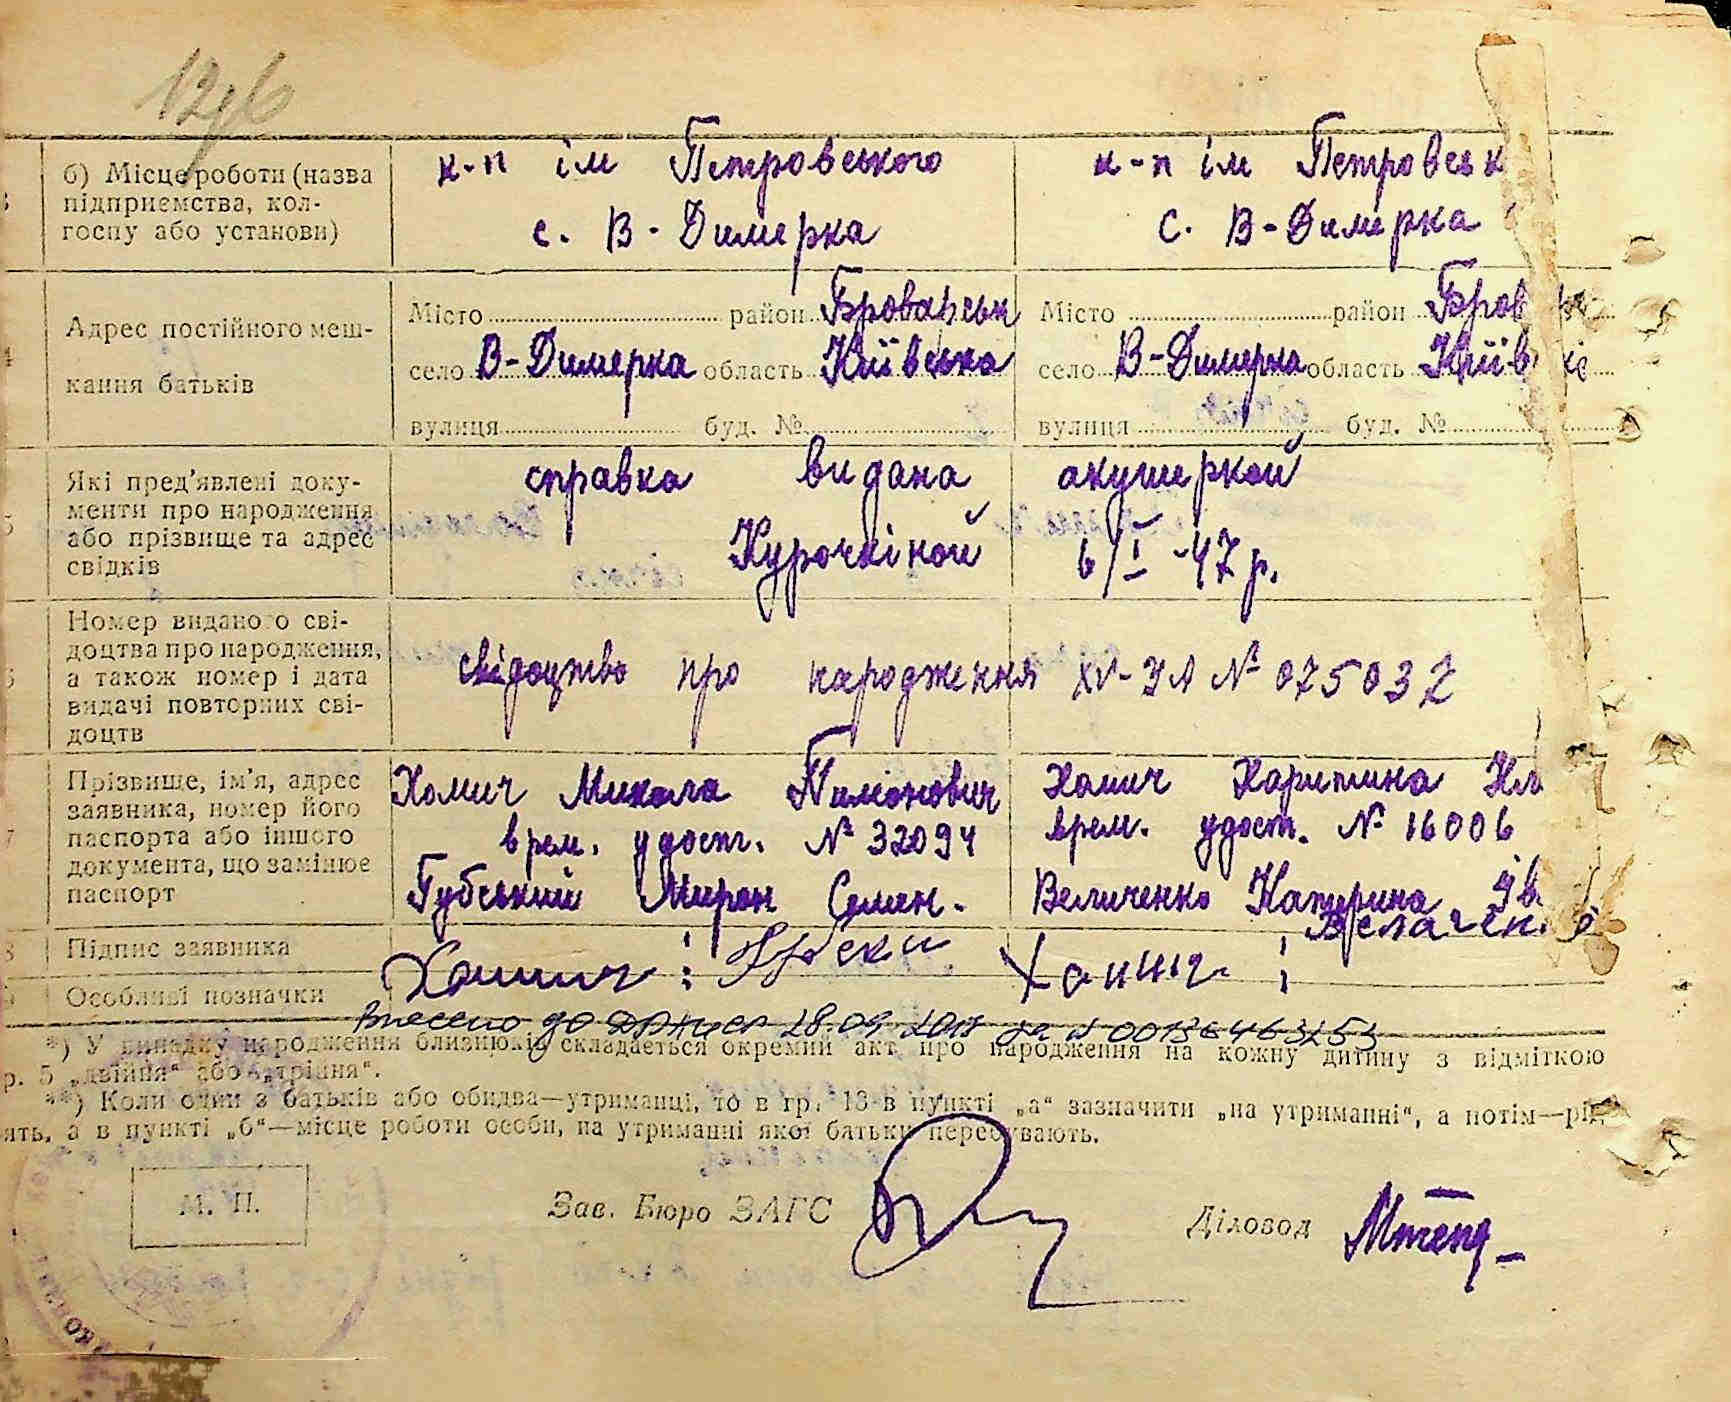 12дб
б) Місце роботи (назва підприємства, колгоспу або установи)
к-п ім Петровського
с. В-Димерка
к-п ім Петровськ
с. В-Димерка
Адрес постійного мешкання батьків
Місто район Броварськ
село В-Димерка область Київська
вулиця буд. №
Місто район Бров
село В-Димерка область Київ
вулиця буд. №
Які пред'явлені документи про народження або прізвище та адрес свідків
справка видана акушеркой
Курочкіной 6/I-47 р.
Номер виданого свідоцтва про народження, а також номер і дата видачі повторних свідоцтв
свідоцтво про народження XV-УЛ № 075037
Прізвище, ім'я, адрес заявника, номер його паспорта або іншого документа, що замінює паспорт
Хомич Микола Тимонович
врем. удост. № 32094
Губський Мирон Семен.
Хомич Харитина Кл
врем. удост. № 16006
Величенко Катерина Ів
Підпис заявника
Хомич;
Хомич;
Особливі позначки
Внесено до ДРАЦСГ 28.09.2017 за № 00136463253
*) У випадку народження близнюків складається окремий акт про народження на кожну дитину з відміткою
р. 5 „двійня“ або „трійня“.
**) Коли один з батьків або обидва—утриманці, то в гр. 13 в пункті „а“ зазначити „на утриманні“, а потім—рід
ять, а в пункті „б“—місце роботи особи, на утриманні якої батьки перебувають.
М. П.
Зав. Бюро ЗАГС
Діловод